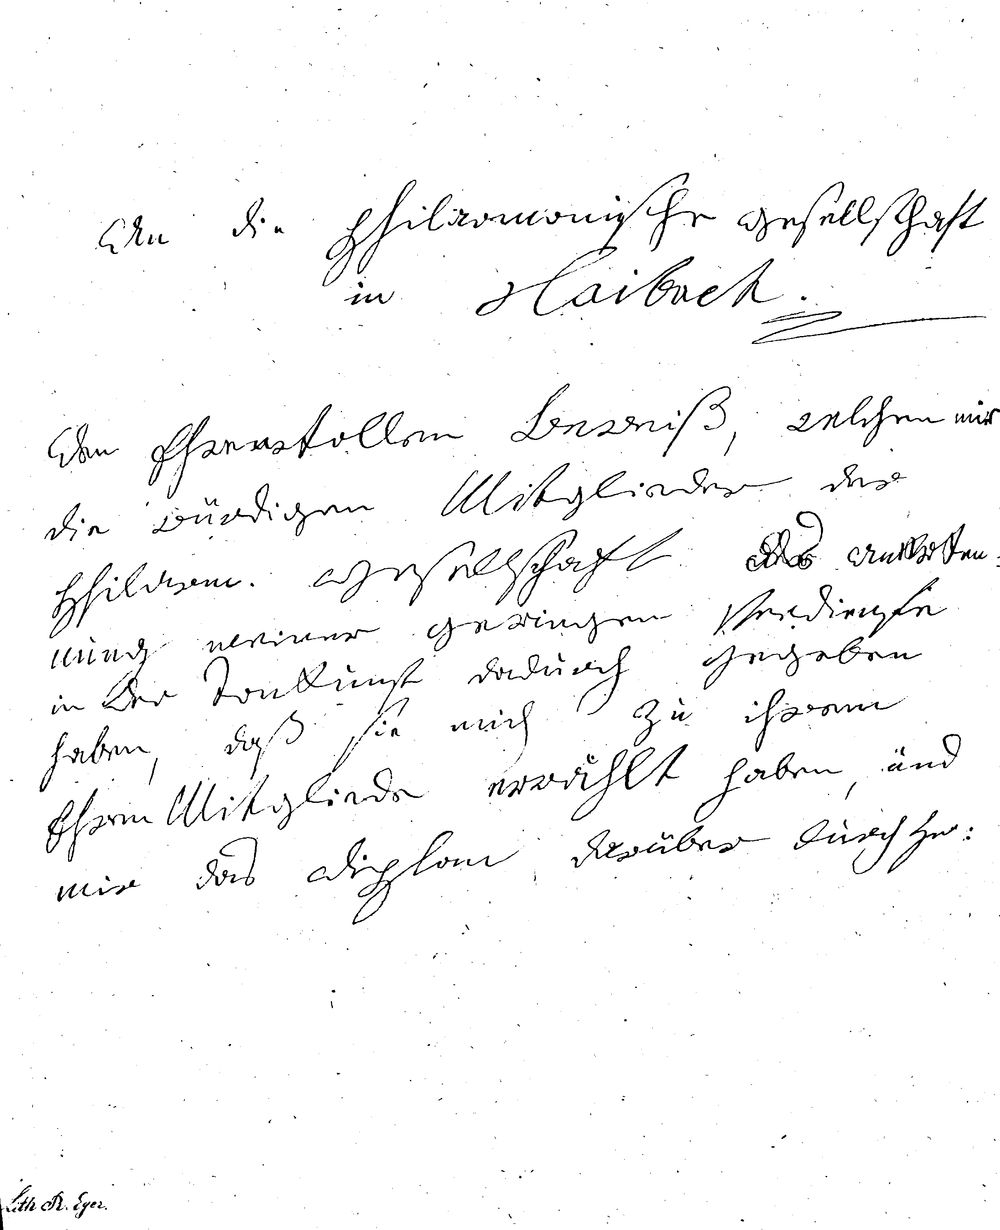 An die philarmonische Gesellschaft
in Laibach.
Den Ehrenvollen Beweiß, welchen mir
die würdigen Mitglieder der
philarm. Gesellschaft als Anerken-
nung meiner geringen Verdienste
in der Tonkunst dadurch gegeben
haben, daß sie mich zu ihrem
Ehren Mitgliede erwählt haben, und
mir das Diplom darüber durch Hr:
Lith R. Eger.